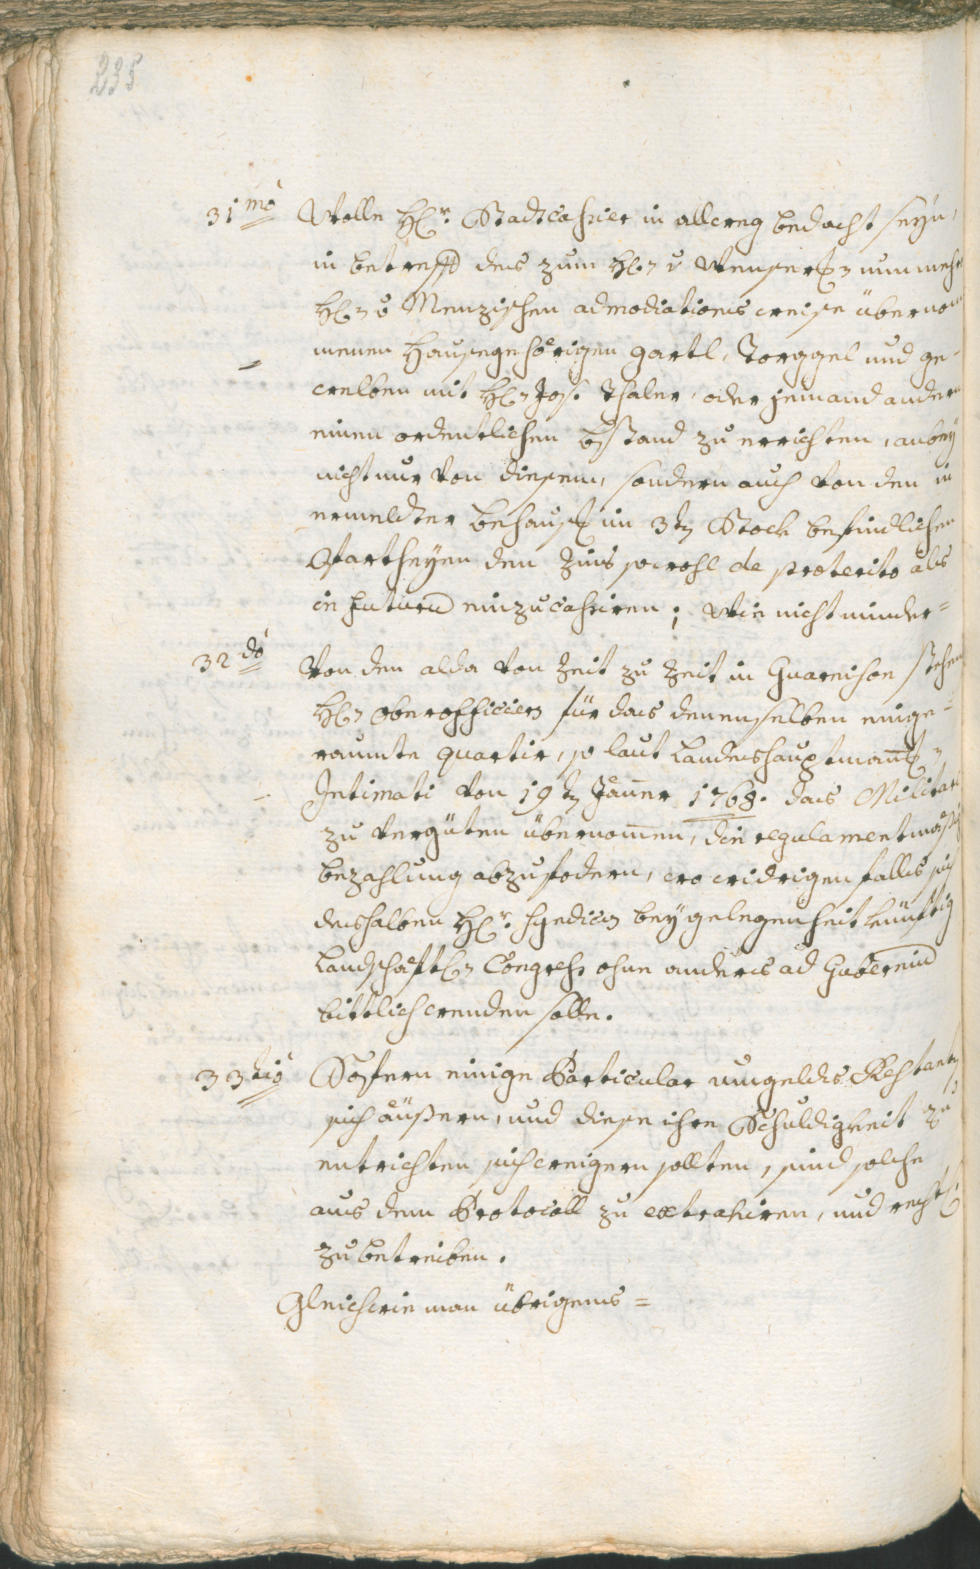 235
31mo Wolle H: Stadtcassier in allweg bedacht seyn,
in betreff des zum H: v: nunmehr
H: v: Menzischen admodiations weise übernom
menen Hausegehörigen gartl, Torggel und ge-
welben mit H: Jos: Thaler, oder jemand andern
einen ordentlichen bstand zu errichten, anbey
nicht nur von diesem, sondern auch von den in
ermeldter behaus: im 3ten Stock befindlichen
Partheyen den Zins sowohl de praeterito als
in futurum einzucassiren; wie nicht minder=
32do Von den alda von Zeit zu Zeit in Guarnison stehen
H: oberofficiers für das denenselben einge=
raumte quartir, so laut Landeshauptmann:
Intimati von 19ten Jäner 1768. das Militar
zu vergüten übernommen, die regulamentmäßig
bezahlung abzufodern, wo widrigen falls sich
deshalben H: Syndicus bey gelegenheit künftig
Landschaftl: Congress ohne anders ad Gubernium
bittlich wenden solle.
33tio Sofern einige Particular umgelds Restanten
sich äußern, und diese ihre Schuldigkeit zu
entrichten sich weigern sollten, sind solche
aus dem Protocoll zu extrahiren, und rechtl:
zu betreiben.
Gleichwie man übrigens=